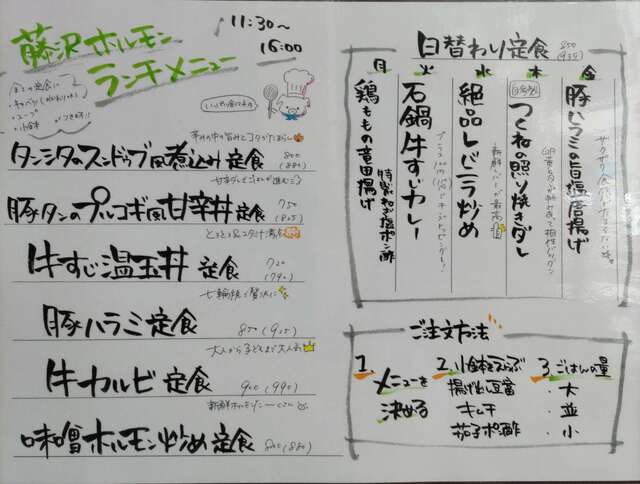 藤沢ホルモン
ランチメニュー
11:30〜
16:00
全ての定食に
・キャベツ
・スープ
・小鉢
がつきます!!
タンシタのスンドゥブ風煮込み定食 800(880)
豚タンのプルコギ風甘辛丼定食 750(825)
牛すじ温玉丼 定食 720(792)
七輪焼で贅沢に
豚ハラミ定食 850(935)
大人から子どもまで大人気
牛カルビ 定食 900(990)
味噌ホルモン炒め定食 800(880)
日替わり定食 850(935)
月
鶏ももの竜田揚げ
特製ねぎ塩ポン酢
火
石鍋牛すじカレー
水
絶品レバニラ炒め
木
つくねの照り焼きダレ
金
豚ハラミの旨塩唐揚げ
ご注文方法
1. メニューを決める
2. 小鉢をえらぶ
揚げ出し豆腐
キムチ
茄子ポン酢
3. ごはんの量
・大
・並
・小